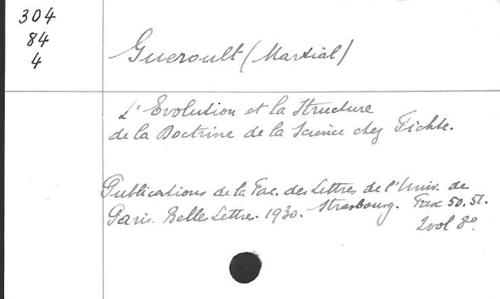 304
84
4
Gueroult (Martial)
L'Evolution et la Structure
de la Doctrine de la Science chez Fichte.
Publications de la Fac. des Lettres de l'Univ. de
Strasbourg. Fax 50.51.
Paris. Belles Lettres. 1930.
2 vol 8º